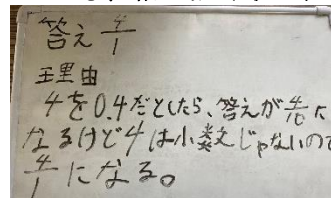 答え 4/1
理由
4を0.4だとしたら、答えが4/10に
なるけど4は小数じゃないので
4/1になる。